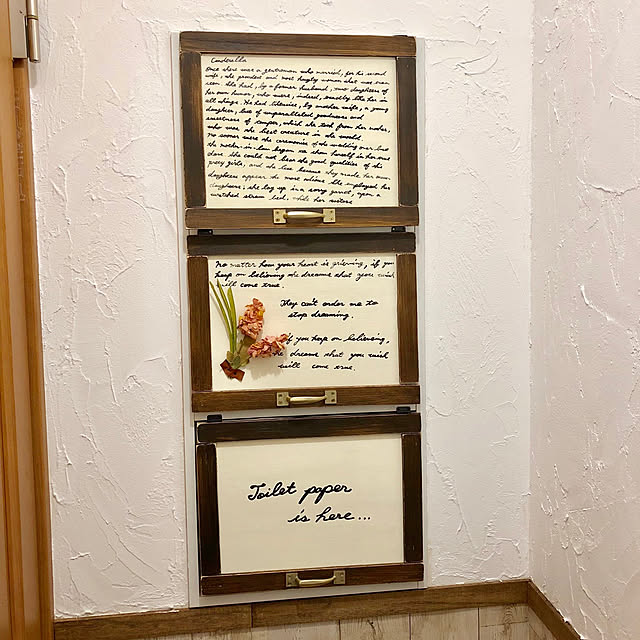 Cinderella
Once there was a gentleman who married, for his second
wife, the proudest and most haughty woman that was ever
seen. She had, by a former husband, two daughters of
her own humor, who were, indeed, exactly like her in
all things. He had likewise, by another wife, a young
daughter, but of unparalleled goodness and
sweetness of temper, which she took from her mother,
who was the best creature in the world.
No sooner were the ceremonies of the wedding over but
the mother-in-law began to show herself in her true
She could not bear the good qualities of this
pretty girl, and the less because they made her own
daughters appear the more odious. She employed her
she lay up in a sorry garret, upon a
wretched straw bed, while her sisters
No matter how your heart is grieving, if you
keep on believing the dreams that you wish
will come true.
They can't order me to
stop dreaming.
if you keep on believing,
he dreams that you wish
will come true.
Toilet paper
is here...